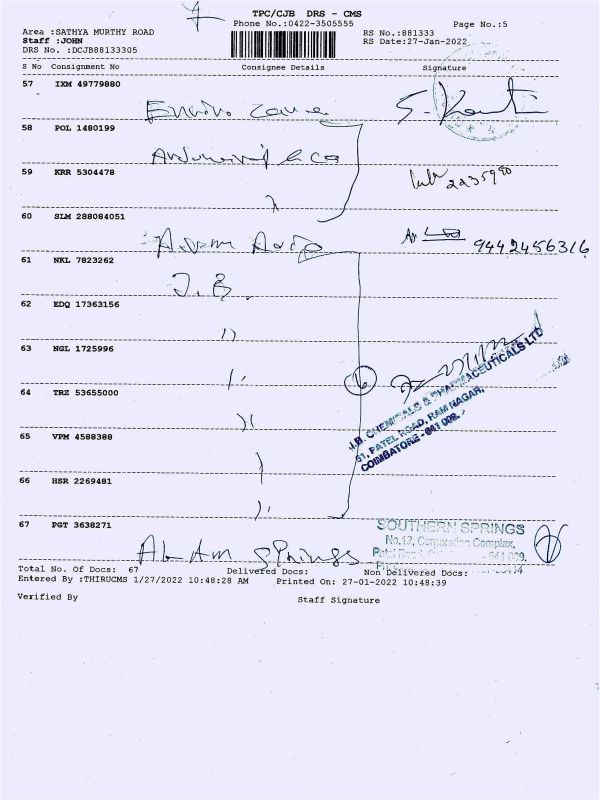 TPC/CJB DRS - CMS
Phone No.:0422-3505555
Page No.:5
Area :SATHYA MURTHY ROAD
RS No.:881333
Staff :JOHN
RS Date:27-Jan-2022
DRS No. :DCJB88133305
S No Consignment No Consignee Details Signature
57 IXM 49779880
58 POL 1480199
59 KRR 5304478
60 SLM 288084051
9442456316
61 NKL 7823262
J.B.
62 EDQ 17363156
63 NGL 1725996
64 TRZ 53655000
6
J.B. CHEMICALS & PHARMACEUTICALS LTD
51, PATEL ROAD, RAM NAGAR,
COIMBATORE - 641 009.
65 VPM 4588388
66 HSR 2269481
67 PGT 3638271
SOUTHERN SPRINGS
No.12, Corporation Complex,
641 009.
Springs
Total No. Of Docs: 67 Delivered Docs: Non Delivered Docs:
Entered By :THIRUCMS 1/27/2022 10:48:28 AM Printed On: 27-01-2022 10:48:39
Verified By Staff Signature